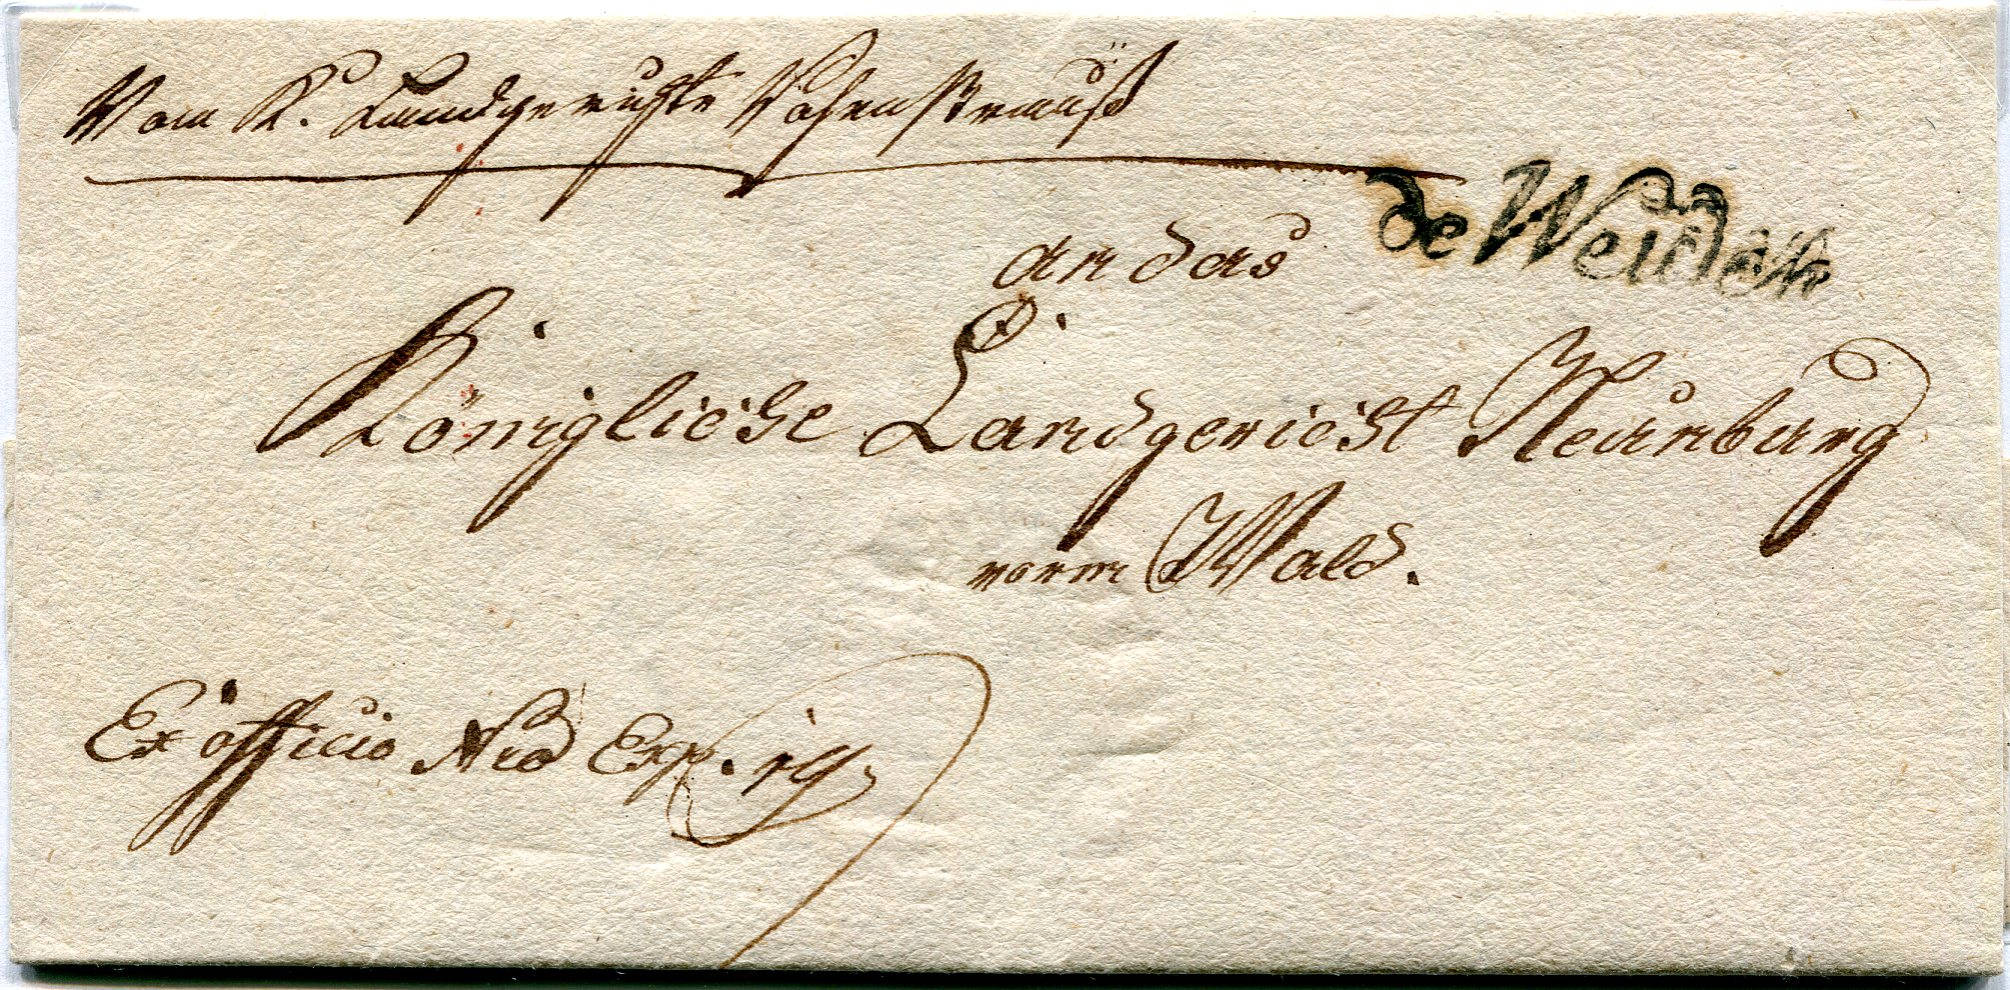 Vom K. Landgerichte Vohenstrauß
de Weiden
an das
Königliche Landgericht Neunburg
vorm Wald.
Ex officio Nro Exp.